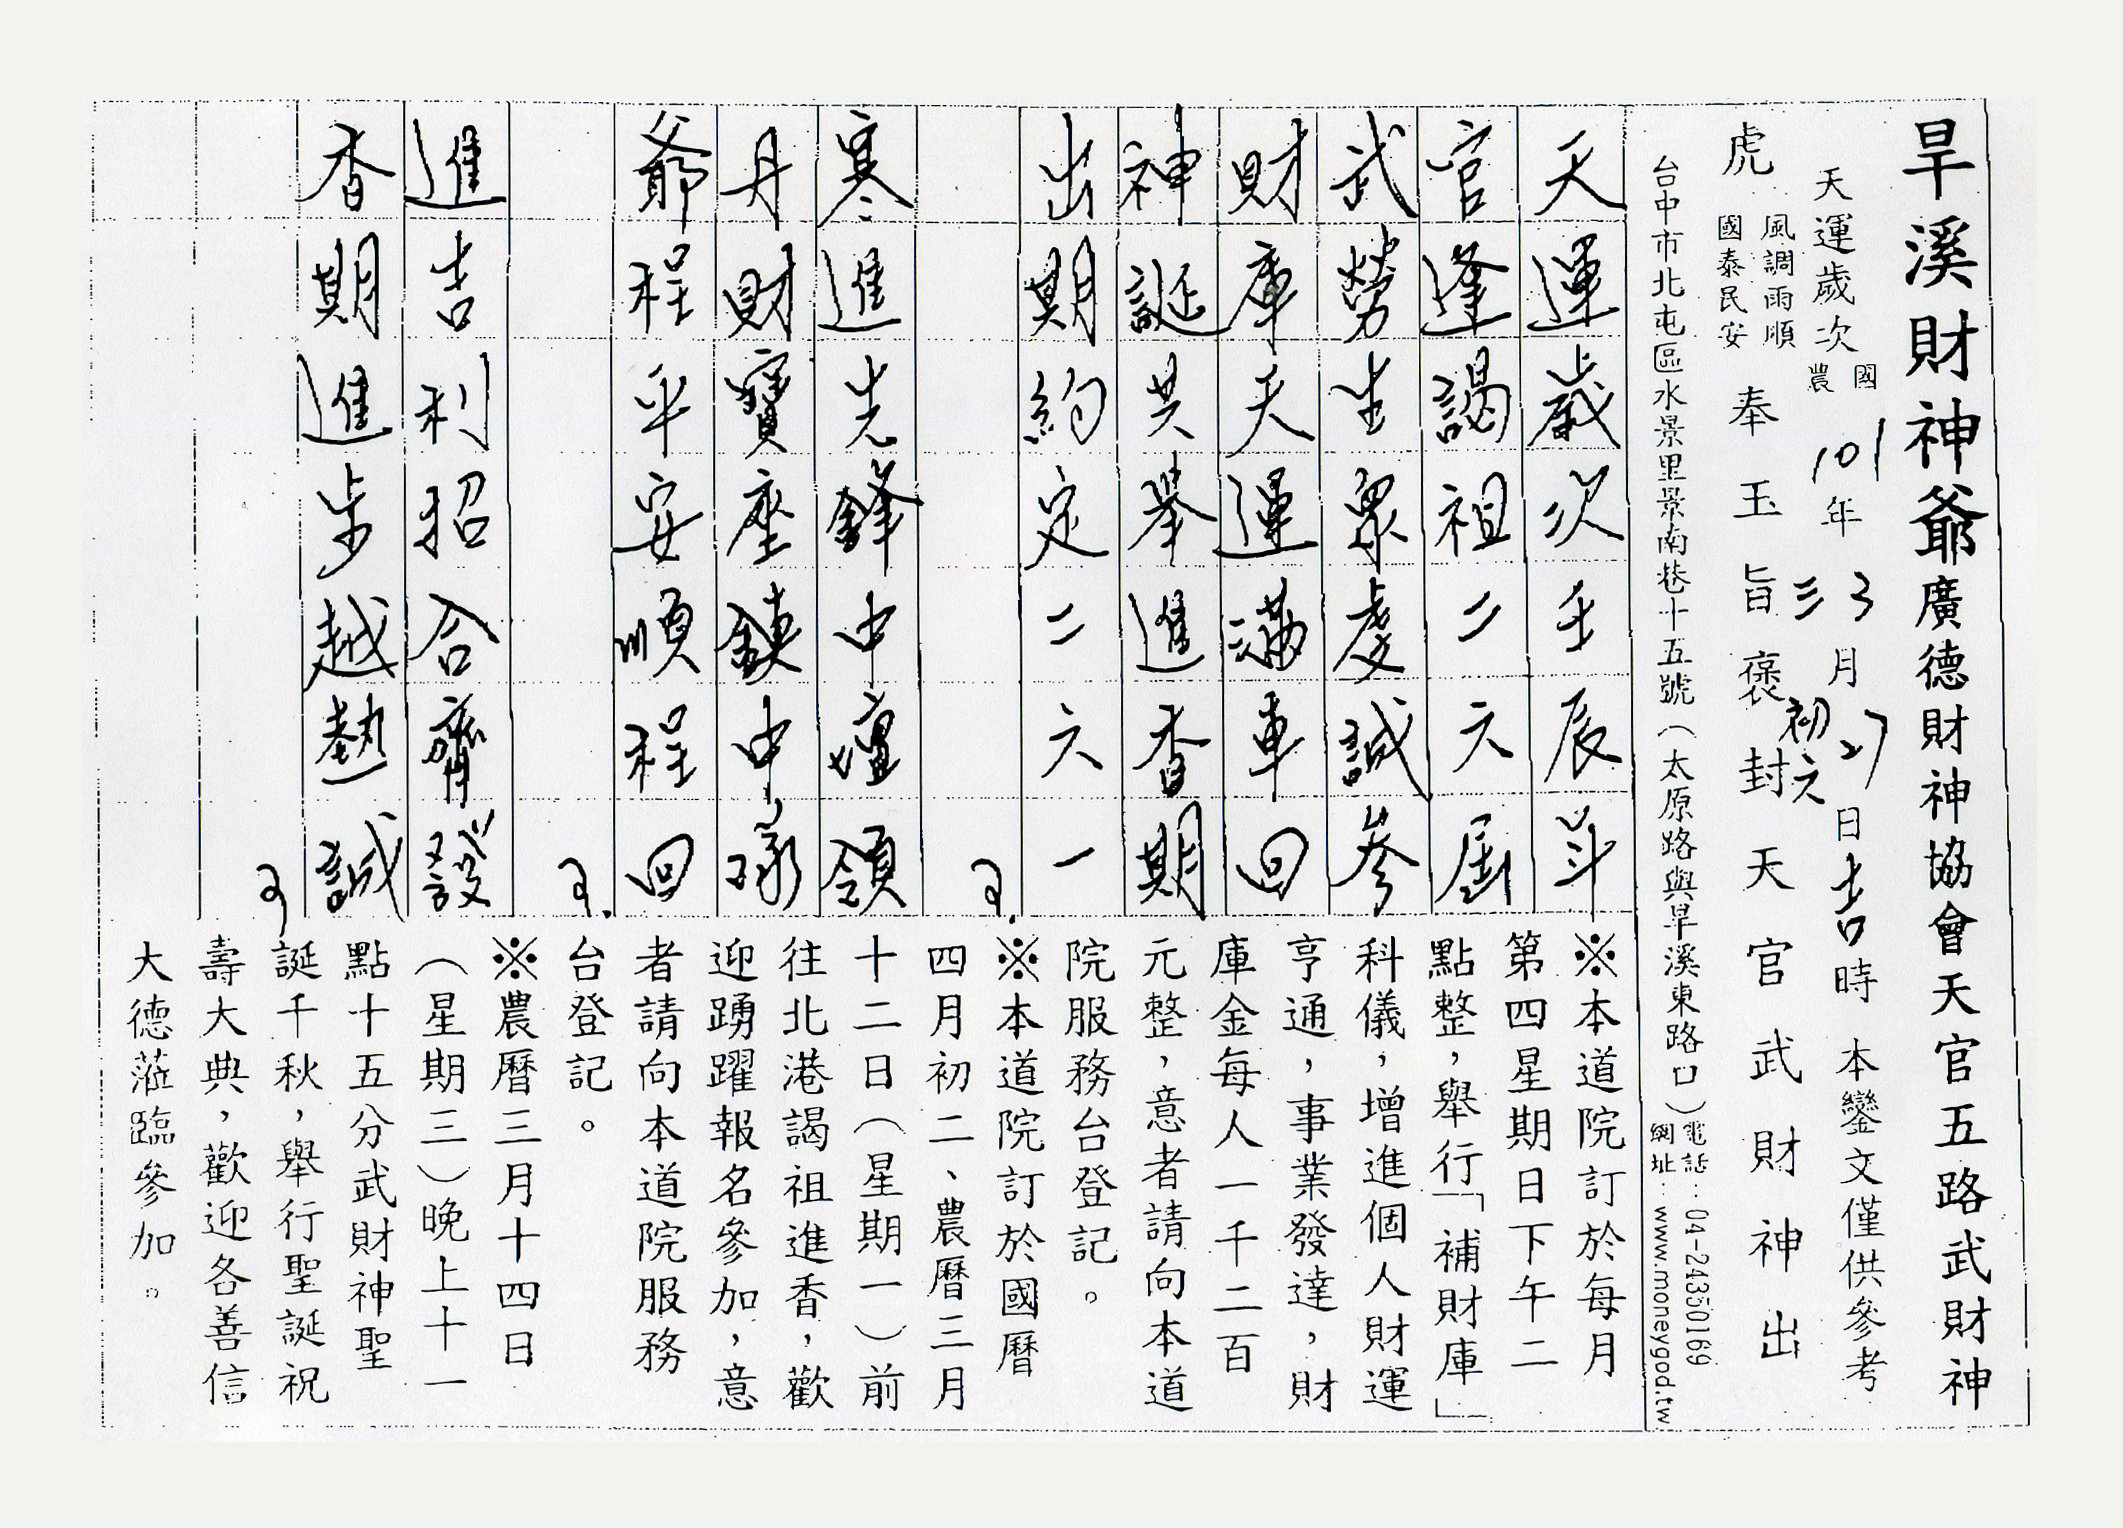 旱溪財神爺廣德財神協會天官五路武財神
天運歲次國農101年33月初六27日吉時 本鑾文僅供參考
虎 風調雨順 國泰民安 奉玉旨褒封天官武財神出
台中市北屯區水景里景南巷十五號（太原路與旱溪東路口）電話：04-24350169
網址：www.moneygod.tw
天運歲次壬辰斗
官逢謁祖二六屆
武勞生眾虔誠參
財庫天運滿車回
神誕共舉進香期
出期約定二六一
寒進先鋒中壇領
丹財寶座鎮中承
爺程平安順程回
進吉利招合齊發
香期進步越熱誠
※本道院訂於每月
第四星期日下午二
點整，舉行「補財庫」
科儀，增進個人財運
亨通，事業發達，財
庫金每人一千二百
元整，意者請向本道
院服務台登記。
※本道院訂於國曆
四月初二、農曆三月
十二日（星期一）前
往北港謁祖進香，歡
迎踴躍報名參加，意
者請向本道院服務
台登記。
※農曆三月十四日
（星期三）晚上十一
點十五分武財神聖
誕千秋，舉行聖誕祝
壽大典，歡迎各善信
大德蒞臨參加。